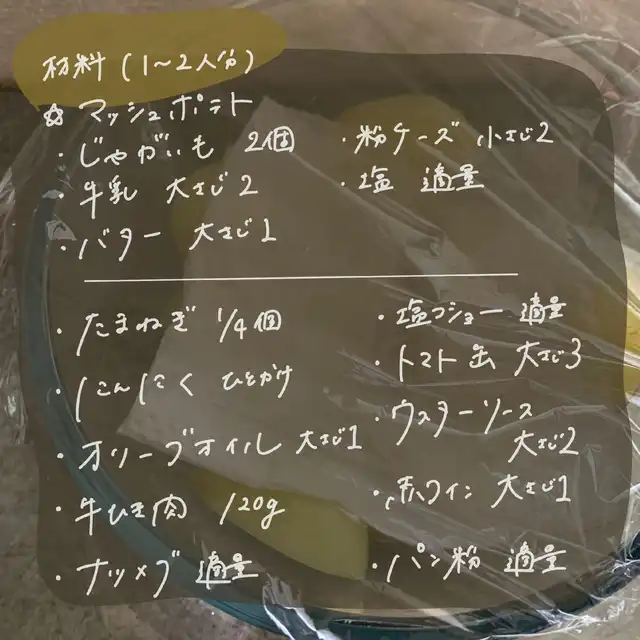 材料(1〜2人分)
☆マッシュポテト
・じゃがいも 2個
・牛乳 大さじ2
・バター 大さじ1
・粉チーズ 小さじ2
・塩 適量
・たまねぎ 1/4個
・にんにく ひとかけ
・オリーブオイル 大さじ1
・牛ひき肉 120g
・ナツメグ 適量
・塩コショー 適量
・トマト缶 大さじ3
・ウスターソース
大さじ2
・赤ワイン 大さじ1
・パン粉 適量